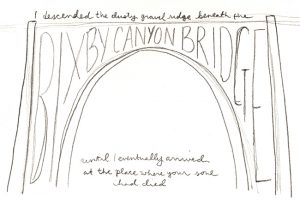 I descended the dusty gravel ridge beneath the
BIXBY CANYON BRIDGE
until I eventually arrived
at the place where your soul
had died